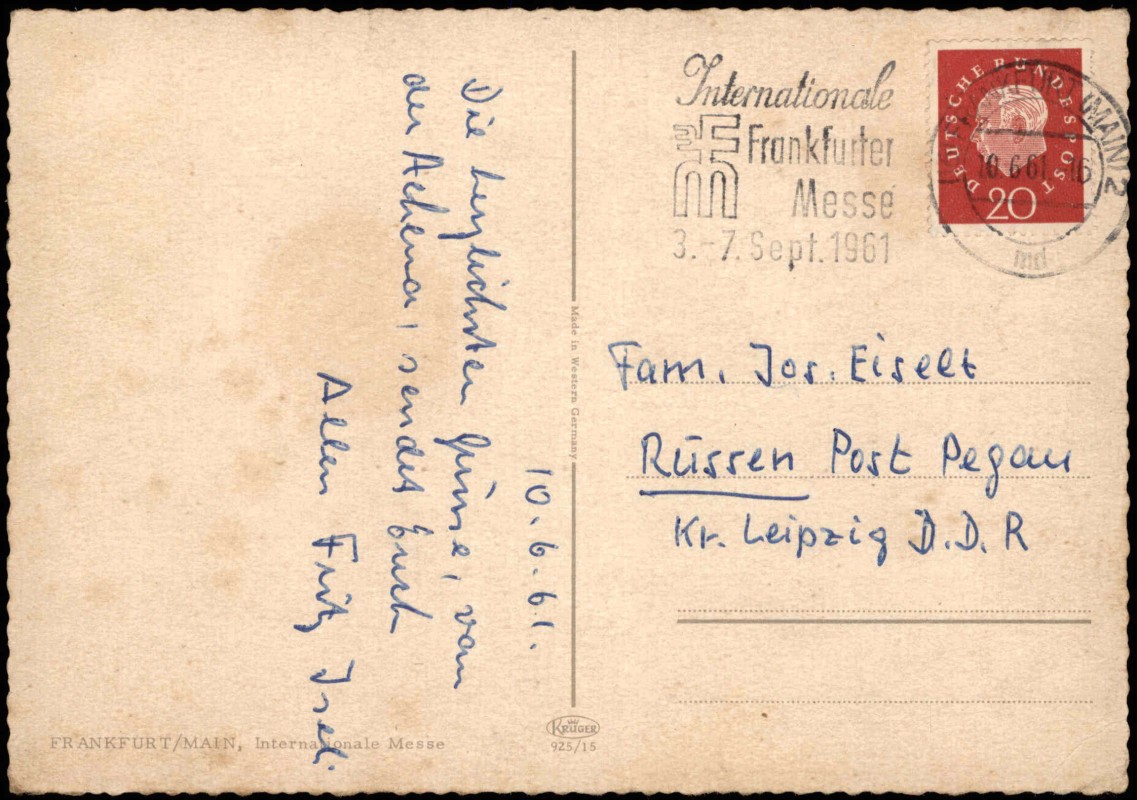 Internationale
Frankfurter
Messe
3.-7. Sept. 1961
DEUTSCHE BUNDESPOST
20
FRANKFURT (MAIN) 2
10.6.61-16
md
10.6.61.
Die herzlichsten Grüsse, von
der Achema, sendet Euch
Allen Fritz
Made in Western Germany
Fam. Jos. Eiselt
Rüssen Post Pegau
Kr. Leipzig D.D.R
FRANKFURT/MAIN, Internationale Messe
KRÜGER
925/15